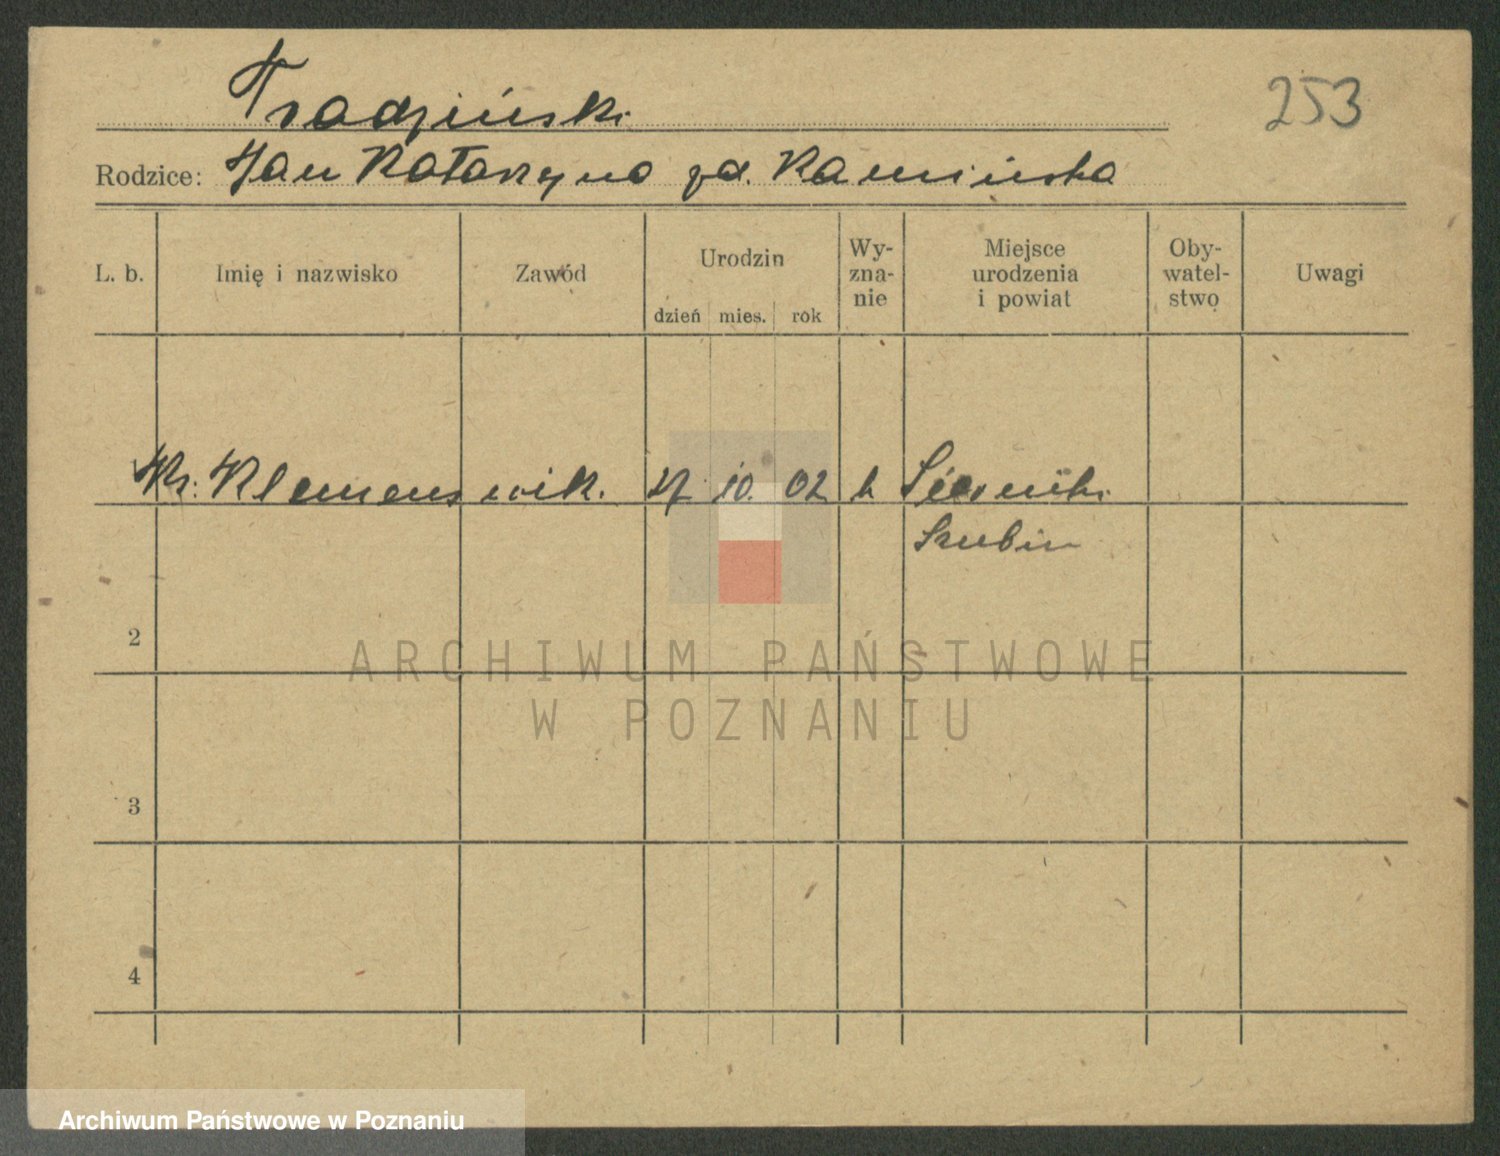 Tradziński
253
Rodzice: Jan Katarzyna zd. Kamińska
L. b. Imię i nazwisko Zawód Urodzin dzień mies. rok Wy-zna-nie Miejsce urodzenia i powiat Oby-watel-stwo Uwagi
Ks. Klemens wik. 27 10. 02 k Sierniki
Szubin
2
ARCHIWUM PAŃSTWOWE
W POZNANIU
3
4
Archiwum Państwowe w Poznaniu